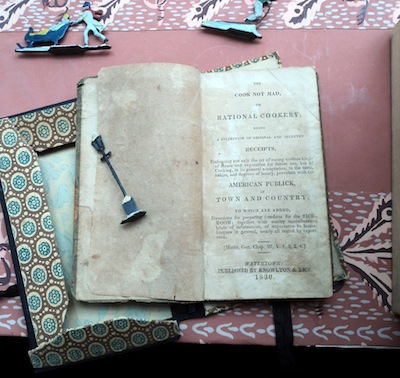 THE
COOK NOT MAD,
OR
RATIONAL COOKERY;
BEING
A COLLECTION OF ORIGINAL AND SELECTED
RECEIPTS,
Embracing not only the art of curing various kinds
of Meats and Vegetables for future use, but of
Cooking, in its general acceptation, to the taste,
habits, and degrees of luxury, prevalent with the
AMERICAN PUBLICK,
IN
TOWN AND COUNTRY.
TO WHICH ARE ADDED,
Directions for preparing comforts for the SICK-
ROOM; together with sundry miscellaneous
kinds of information, of importance to house-
keepers in general, nearly all tested by exper-
ience.
WATERTOWN:
PUBLISHED BY KNOWLTON & RICE
1830.